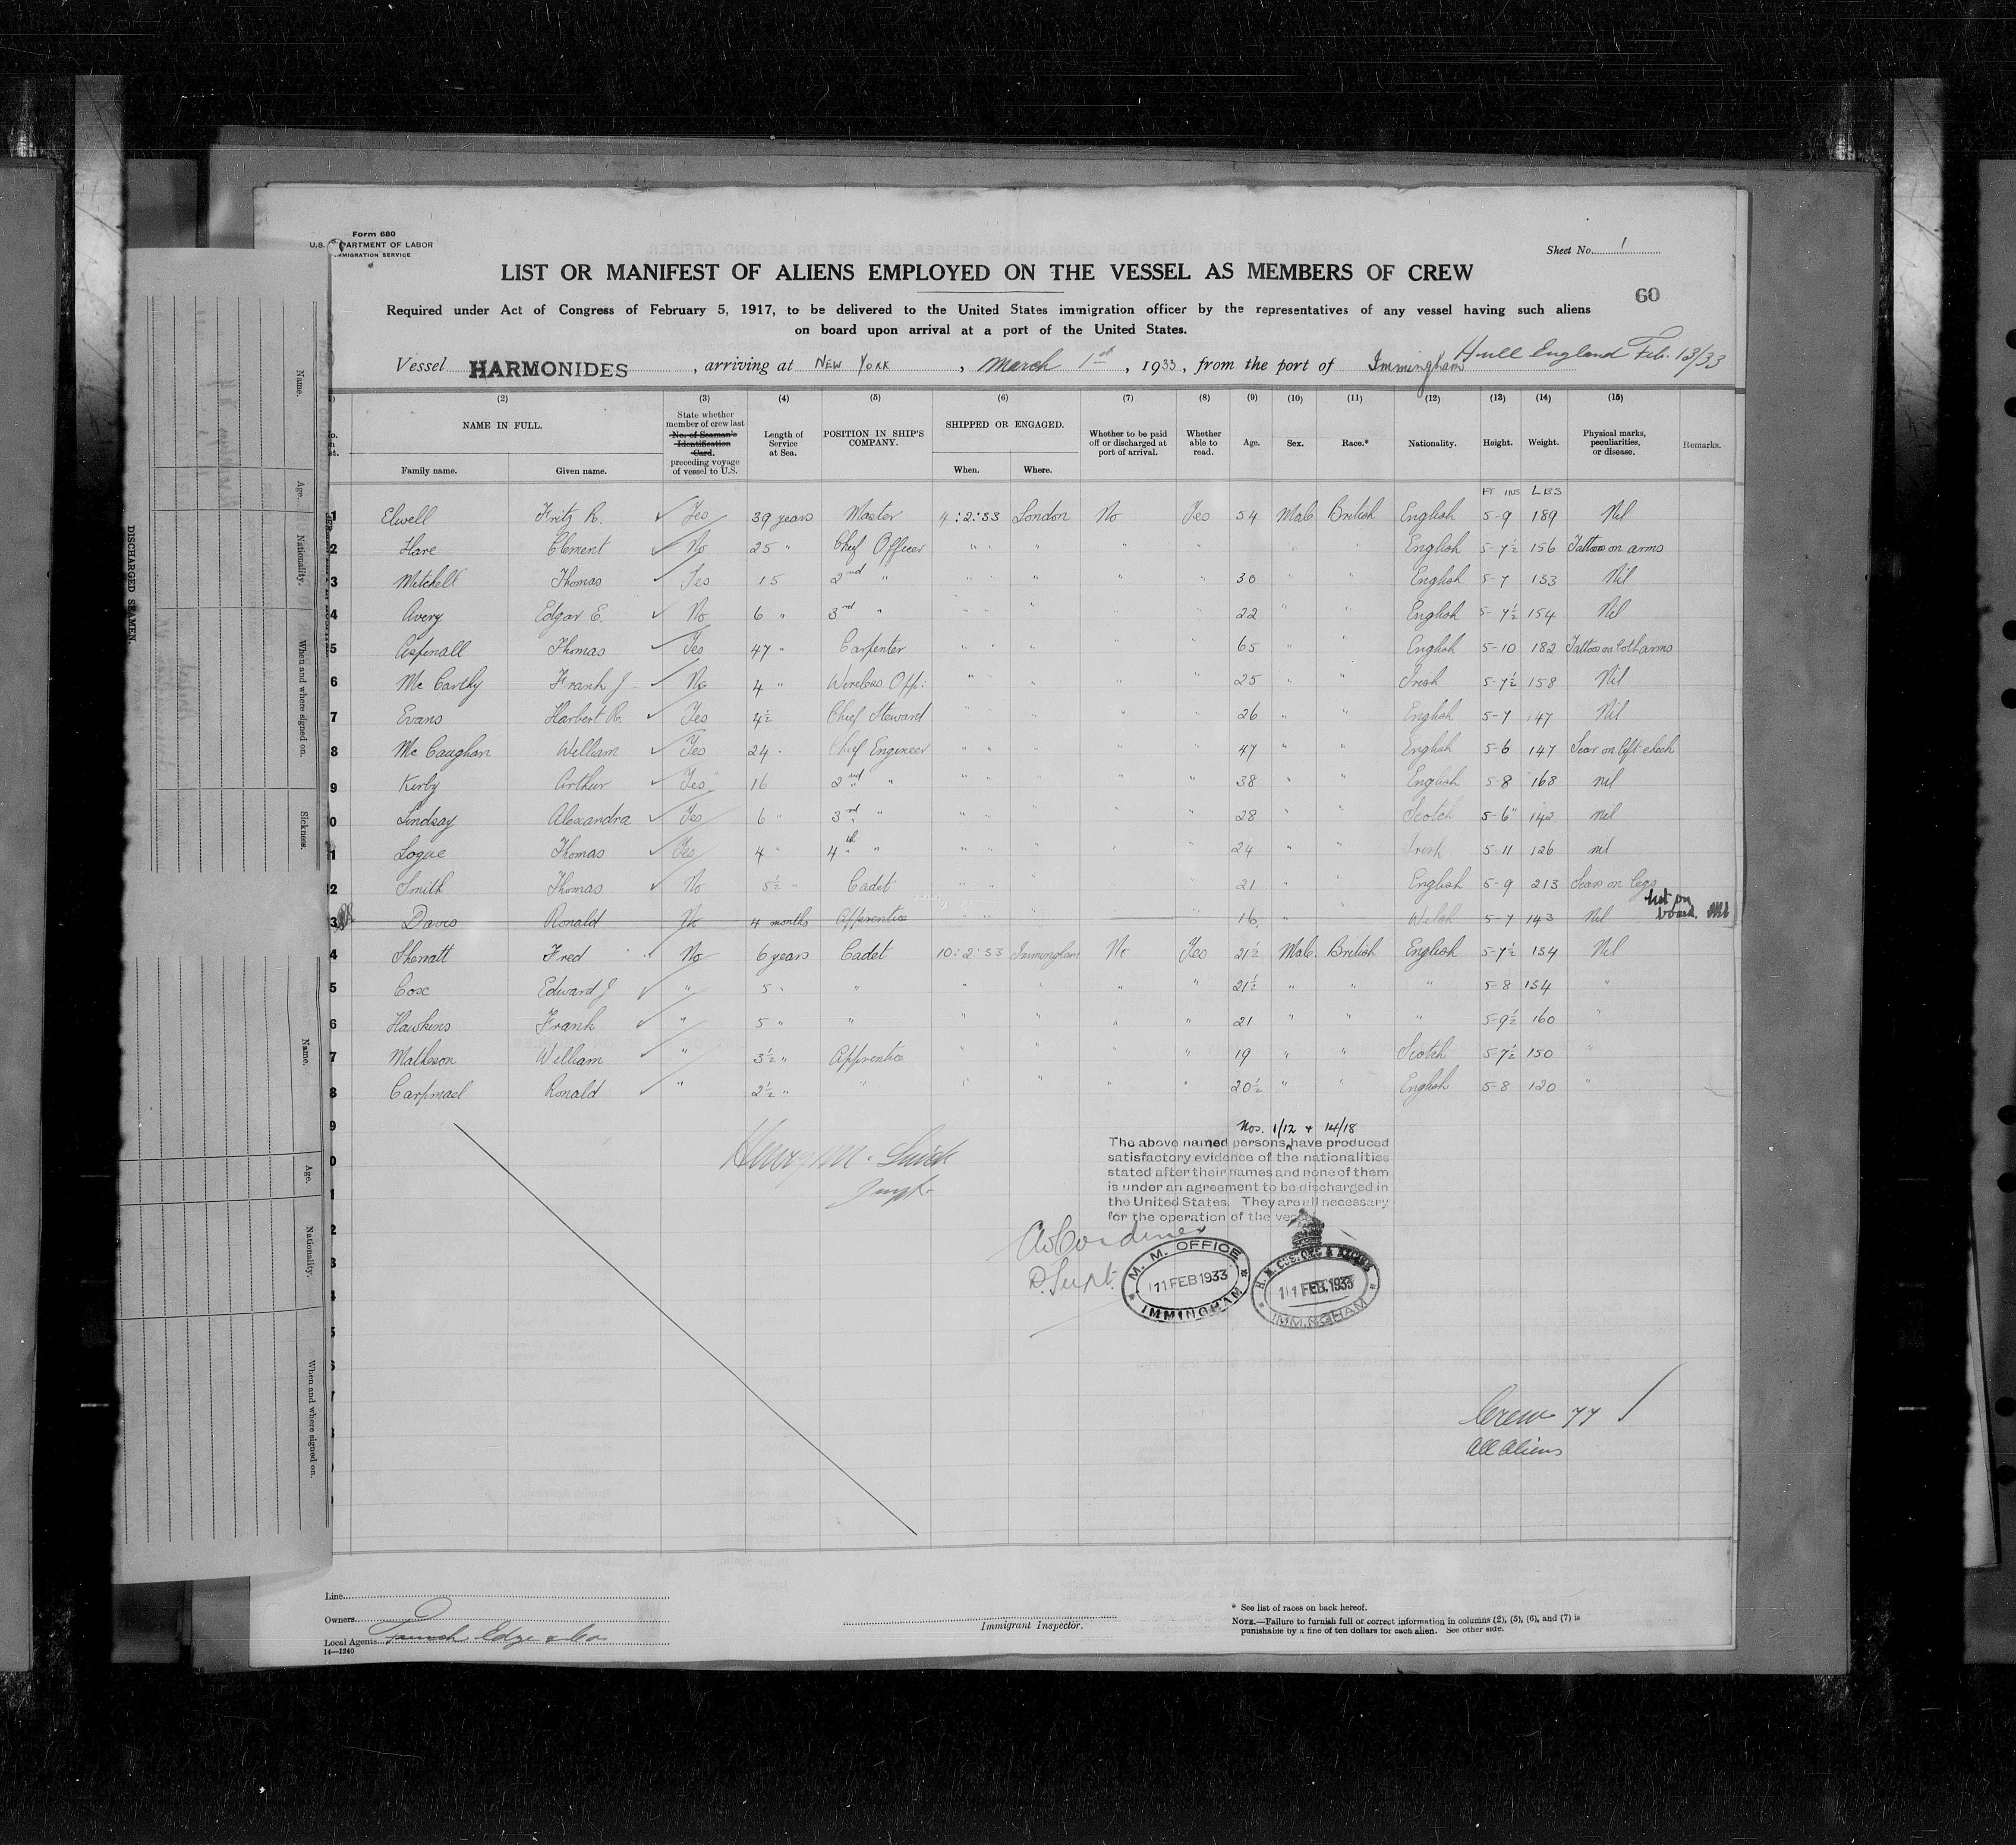 Form 680
U.S. DEPARTMENT OF LABOR
IMMIGRATION SERVICE
Sheet No. 1
LIST OR MANIFEST OF ALIENS EMPLOYED ON THE VESSEL AS MEMBERS OF CREW
60
Required under Act of Congress of February 5, 1917, to be delivered to the United States immigration officer by the representatives of any vessel having such aliens
on board upon arrival at a port of the United States.
Vessel HARMONIDES, arriving at NEW YORK, March 1st, 1933, from the port of Immingham Hull England Feb. 13/33
(2) (3) (4) (5) (6) (7) (8) (9) (10) (11) (12) (13) (14) (15)
NAME IN FULL. Family name. Given name. State whether member of crew last No. of Seaman's Identification Card. preceding voyage of vessel to U.S. Length of Service at Sea. POSITION IN SHIP'S COMPANY. SHIPPED OR ENGAGED. When. Where. Whether to be paid off or discharged at port of arrival. Whether able to read. Age. Sex. Race.* Nationality. Height. Weight. Physical marks, peculiarities, or disease. Remarks.
FT INS LBS
1 Elwell Fritz R. Yes 39 years Master 4:2:33 London No Yes 54 Male British English 5-9 189 Nil
2 Hare Clement No 25 " Chief Officer " " " " " " English 5-7½ 156 Tattoo on arms
3 Mitchell Thomas Yes 15 2nd " " " " " 30 " " English 5-7 153 Nil
4 Avery Edgar E. No 6 " 3rd " " " " " 22 " " English 5-7½ 154 Nil
5 Aspinall Thomas Yes 47 " Carpenter " " 65 " " English 5-10 182 Tattoo on both arms
6 Mc Carthy Frank J No 4 " Wireless Opp: " " " " 25 " " Irish 5-7½ 158 Nil
7 Evans Harbert R. Yes 4½ Chief Steward " " " " 26 " " English 5-7 147 Nil
8 Mc Caughan William Yes 24 " Chief Engineer " " " " 47 " " English 5-6 147 Scar on left cheek
9 Kirby Arthur Yes 16 2nd " " " " " 38 " " English 5-8 168 nil
0 Lindsay Alexandra Yes 6 " 3rd " " " " " 28 " " Scotch 5-6" 142 nil
1 Logue Thomas Yes 4 " 4th " " " " " 24 " " Irish 5-11 126 nil
2 Smith Thomas No 5½ " Cadet " " " " 21 " " English 5-9 213 Scars on legs
3 Davis Ronald No 4 months Apprentice " " " " 16 " " Welsh 5-7 143 Nil not on board.
4 Sherratt Fred No 6 years Cadet 10:2:33 Immingham No Yes 21½ Male British English 5-7½ 154 Nil
5 Cox Edward J " 5 " " " " " " 21½ " " " 5-8 154 "
6 Hawkins Frank " 5 " " " " " " 21 " " " 5-9½ 160 "
7 Matheson William " 3½ " Apprentice " " " " 19 " " Scotch 5-7½ 150 "
8 Carpmael Ronald " 2½ " " " " " " 20½ " " English 5-8 120 "
Nos. 1/12 + 14/18
The above named persons have produced
satisfactory evidence of the nationalities
stated after their names and none of them
is under an agreement to be discharged in
the United States. They are all necessary
for the operation of the vessel
D. Supt.
M. M. OFFICE
11 FEB 1933
IMMINGHAM
H. M. CUSTOMS & EXCISE
11 FEB. 1933
IMMINGHAM
Crew 77
All Aliens
Line
Owners
Local Agents Edge & Co
14—1240
Immigrant Inspector.
* See list of races on back hereof.
NOTE.—Failure to furnish full or correct information in columns (2), (5), (6), and (7) is
punishable by a fine of ten dollars for each alien. See other side.
DISCHARGED SEAMEN.
Name. Age. Nationality. When and where signed on. Sickness.
Name. Age. Nationality. When and where signed on.